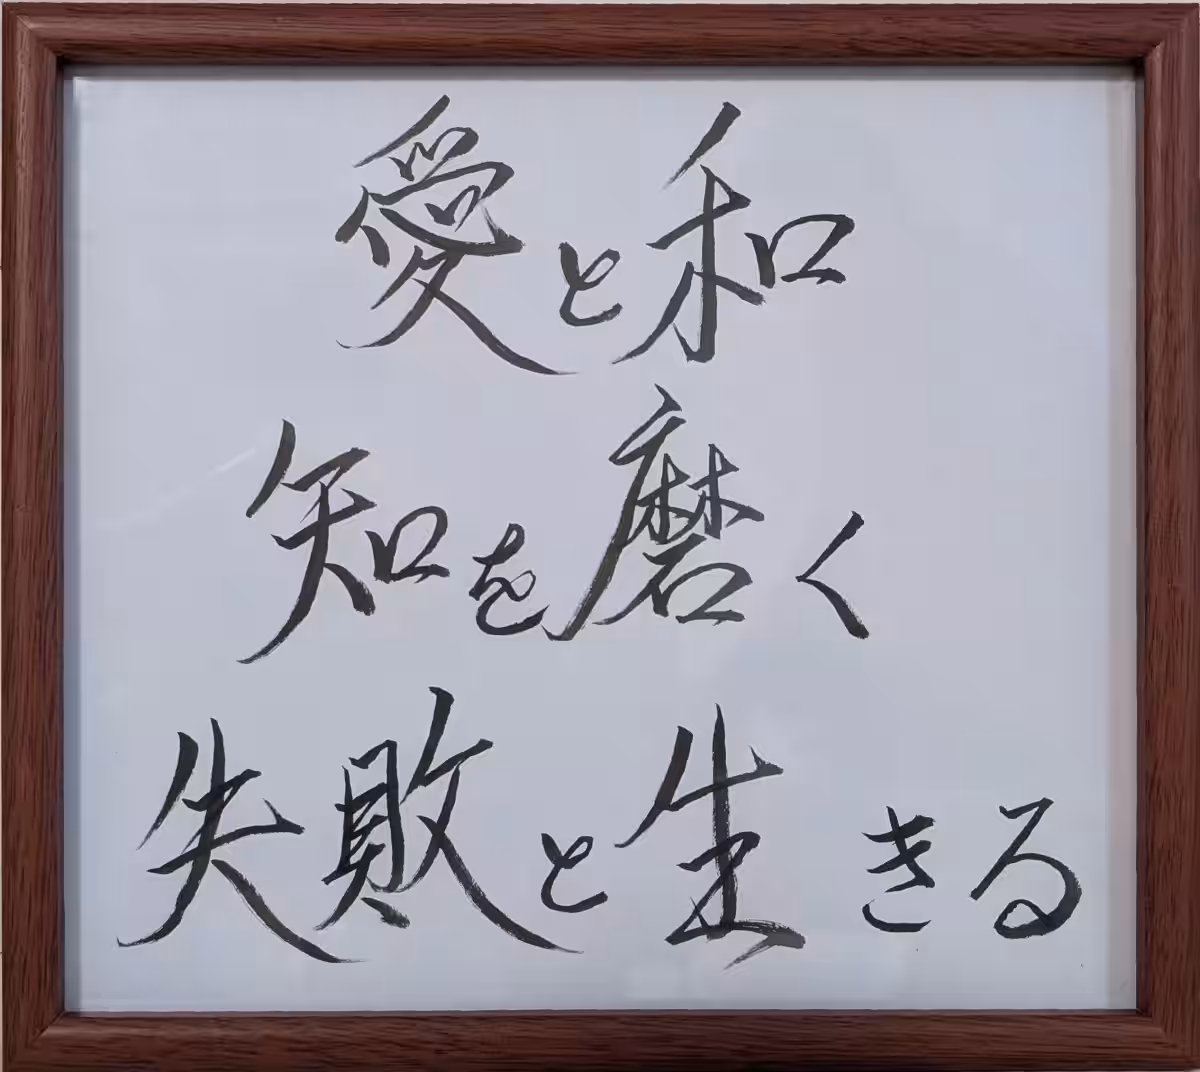 愛と和
知を磨く
失敗と生きる